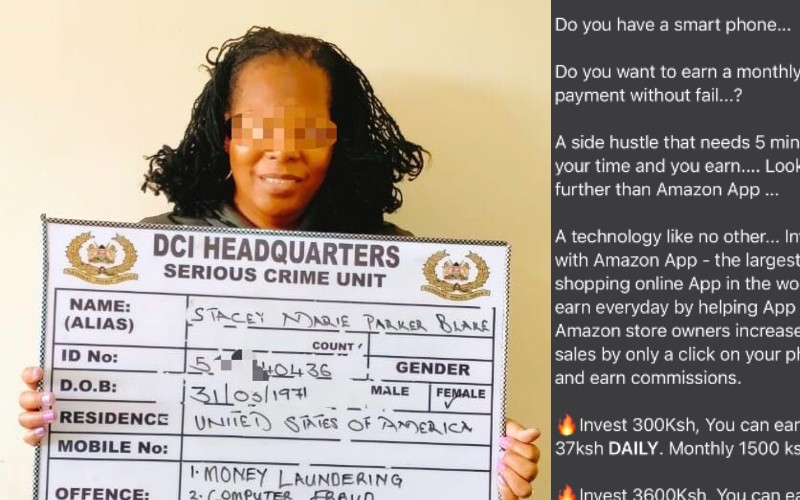 DCI HEADQUARTERS
SERIOUS CRIME UNIT
NAME:
(ALIAS)
STACEY MARIE PARKER BLAKE
COUNT
ID No:
40436
GENDER
D.O.B:
31/03/1971
MALE
FEMALE
RESIDENCE
UNITED STATES OF AMERICA
MOBILE No:
OFFENCE:
1. MONEY LAUNDERING
2. COMPUTER FRAUD
Do you have a smart phone...
Do you want to earn a monthly
payment without fail...?
A side hustle that needs 5 min
your time and you earn.... Look
further than Amazon App ...
A technology like no other... In
with Amazon App - the largest
shopping online App in the wo
earn everyday by helping App
Amazon store owners increase
sales by only a click on your ph
and earn commissions.
🔥Invest 300Ksh, You can ear
37ksh DAILY. Monthly 1500 ks
🔥Invest 3600Ksh, You can ea